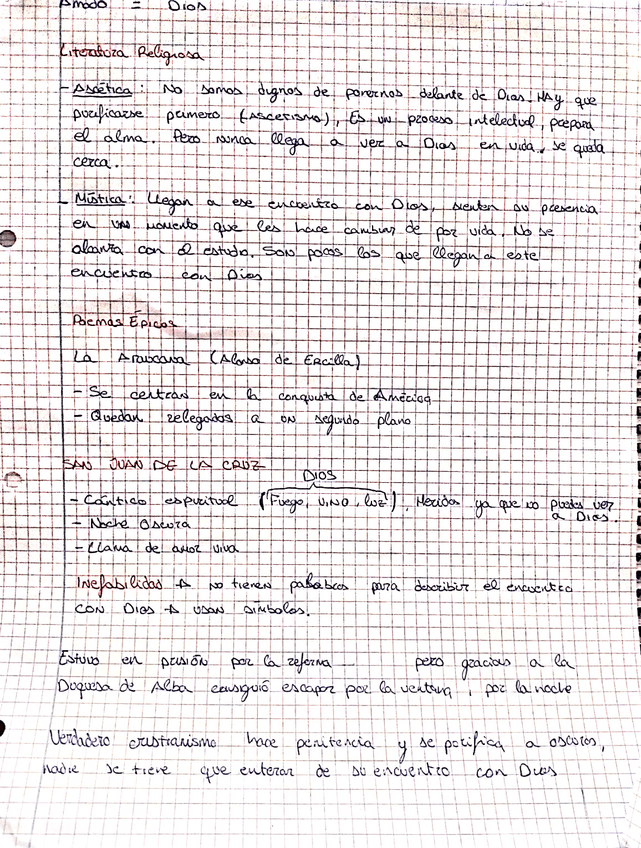 Amado = Dios
Literatura Religiosa
- Ascética: No somos dignos de ponernos delante de Dios. HAy que
purificarse primero (Ascetismo), Es un proceso intelectual, prepara
el alma. Pero nunca llega a ver a Dios en vida, se queda
cerca.
- Mística: Llegan a ese encuentro con Dios, sienten su presencia
en un momento que les hace cambiar de por vida. No se
alcanza con el estudio. Son pocos los que llegan a este
encuentro con Dios
Poemas Épicos
La Araucana (Alonso de Ercilla)
- Se centran en la conquista de América
- Quedan relegados a un segundo plano
SAN JUAN DE LA CRUZ
DIOS
- Cántico espiritual (Fuego, vino, luz). Heridas ya que no puedes ver
a Dios.
- Noche Oscura
- Llama de amor viva
Inefabilidas → no tienen palabras para describir el encuentro
con Dios → usan símbolos.
Estuvo en prisión por la reforma pero gracias a la
Duquesa de Alba consiguió escapar por la ventana, por la noche
Verdadero cristianismo hace penitencia y se purifica a oscuras,
nadie se tiene que enterar de su encuentro con Dios